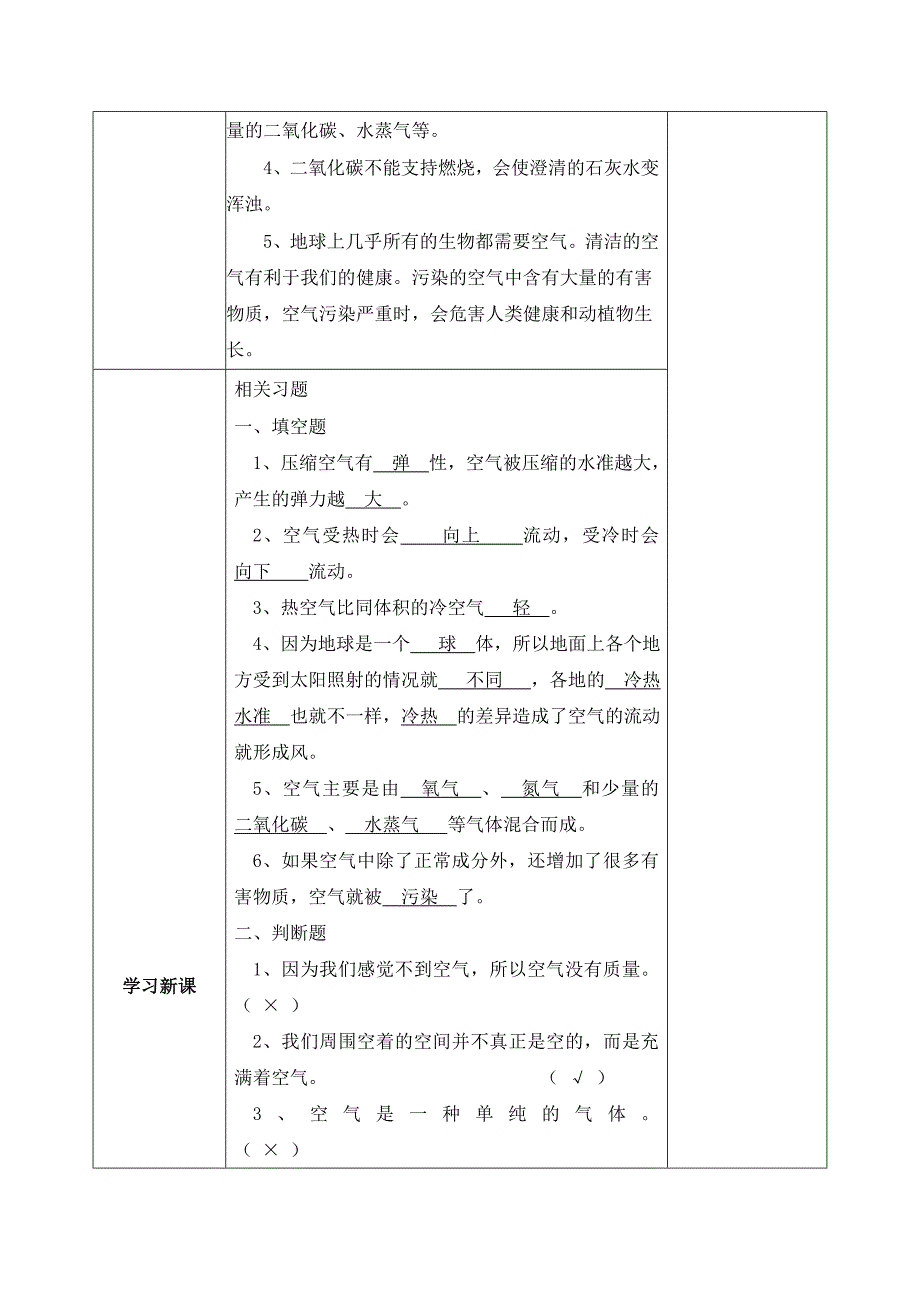 量的二氧化碳、水蒸气等。
4、二氧化碳不能支持燃烧，会使澄清的石灰水变
浑浊。
5、地球上几乎所有的生物都需要空气。清洁的空
气有利于我们的健康。污染的空气中含有大量的有害
物质，空气污染严重时，会危害人类健康和动植物生
长。
相关习题
一、填空题
1、压缩空气有 弹 性，空气被压缩的水准越大，
产生的弹力越 大 。
2、空气受热时会 向上 流动，受冷时会
向下 流动。
3、热空气比同体积的冷空气 轻 。
4、因为地球是一个 球 体，所以地面上各个地
方受到太阳照射的情况就 不同 ，各地的 冷热
水准 也就不一样，冷热 的差异造成了空气的流动
就形成风。
5、空气主要是由 氧气 、 氮气 和少量的
二氧化碳 、 水蒸气 等气体混合而成。
6、如果空气中除了正常成分外，还增加了很多有
害物质，空气就被 污染 了。
二、判断题
学习新课
1、因为我们感觉不到空气，所以空气没有质量。
（ × ）
2、我们周围空着的空间并不真正是空的，而是充
满着空气。 （ √ ）
3、空气是一种单纯的气体。
（ × ）